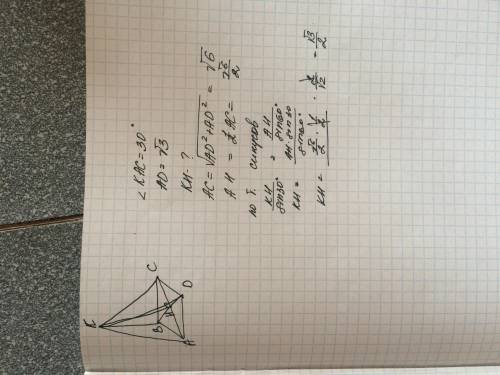 ∠KAC=30°
AD=√3
KH-?
AC=√(AD²+AD²)=√6
AH=½AC=√6/2
по т. синусов
KH/sin30° = AH/sin60°
KH = AH·sin30/sin60°
KH = √6/2 · 1/2 · = √3/2
K
B
C
H
A
D